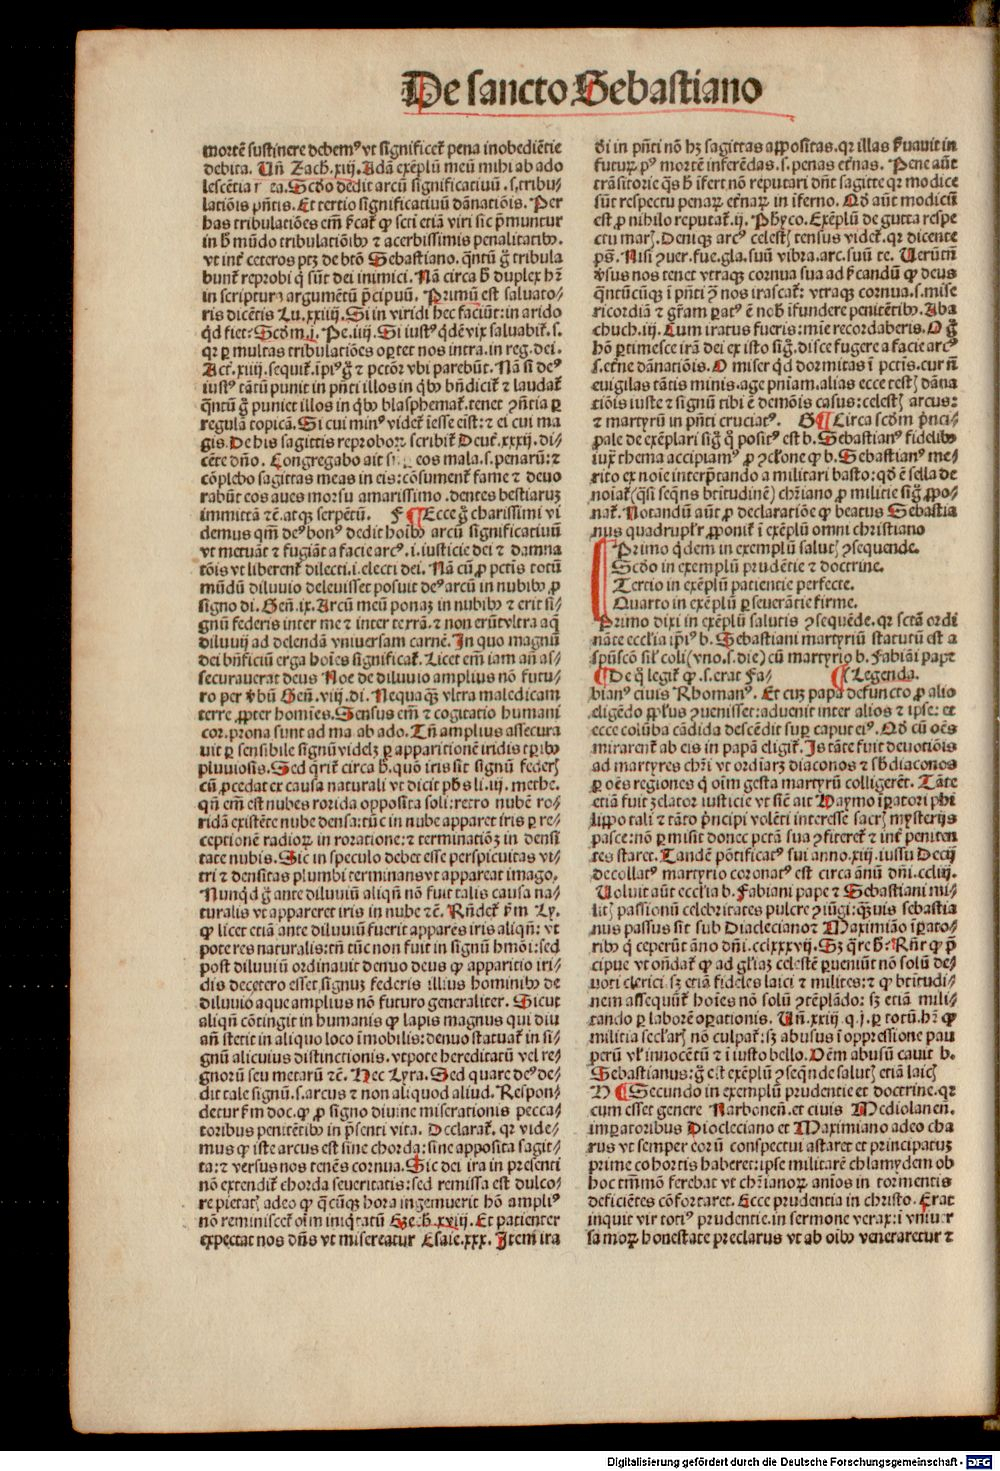 De sancto Sebastiano
mortē sustinere debemꝰ vt significet᷑ pena inobediētie
debita. Uñ Zach.xiij. Adā exēplū meū mihi ab ado
lescētia Scďo dedit arcū significatiuū .s.tribu⸗
latiōis pn̄tis. Et tertio significatiuū dānatiōis. Per
has tribulatiōes em̄ p̄cat᷑ ꝙ scti etiā viri sic p̄muntur
in h̄ mūdo tribulatiōibꝰ ⁊ acerbissimis penalitatibꝰ.
vt int᷑ ceteros ptꝫ de btō Sebastiano. qn̄tū g̊ tribula
bunt᷑ reprobi q̇ sūt dei inimici. Nā circa h̄ duplex hr̄
in scriptura argumētū p̄cipuū. Primū est saluato⸗
ris dicētis Lu.xxiiij. Si in viridi hec faciūt: in arido
qd̓ fiet: Scďm.j. Pe.iiij. Si iustꝰ qͥdē vix saluabit᷑ .s.
qꝛ ꝑ multas tribulatiōes oꝑtet nos intra.in reg.dei.
Act.xiiij. sequit᷑. īpiꝰ g̊ ⁊ pctōr vbi parebūt. Nā si deꝰ
iustꝰ tātū punit in pn̄ti illos in qͥbꝰ bn̄dicit᷑ ⁊ laudat᷑
qn̄tū g̊ puniet illos in qͥbꝰ blasphemat᷑. tenet ꝯn̄tia ꝑ
regulā topicā. Si cui minꝰ videt᷑ iesse eist: ⁊ ei cui ma
gis. De his sagittis reproboꝝ scribit᷑ Deut᷑.xxxij. di⸗
cēte dn̄o. Congregabo ait eos mala.s.penarū: ⁊
cōplebo sagittas meas in eis: cōsument᷑ fame ⁊ deuo
rabūt eos aues morsu amarissimo .dentes bestiaruꝫ
immittā ⁊c̄. atqꝫ serpētū. F ¶ Ecce g̊ charissimi vi
demus qm̄ deꝰ bonꝰ dedit hoībꝰ arcū significatiuū
vt metuāt ⁊ fugiāt a facie arcꝰ.i.iusticie dei ⁊ damna
tōis vt liberent᷑ dilecti.i.electi dei. Nā cū ꝓ pctis totū
mūdū diluuio deleuisset posuit deꝰ arcū in nubibꝰ ꝓ
signo di. Gen̄.ix. Arcū meū ponaꝫ in nubibꝰ ⁊ erit si⸗
gnū federis inter me ⁊ inter terrā. ⁊ non erūt vltra aq̄
diluuij ad delendā vniuersam carnē. In quo magnū
dei bn̄ficiū erga hoīes significat᷑. Licet em̄ iam an̄ as⸗
securauerat deus Noe de diluuio amplius nō futu⸗
ro per v̓bū Gen̄.viij.di. Nequaqꝫ vltra maledicam
terre ꝓpter homīes. Sensus em̄ ⁊ cogitatio humani
cor.prona sunt ad ma.ab ado. Tn̄ amplius assecura
uit ꝑ sensibile signū videlꝫ ꝑ apparitionē iridis tꝑibꝰ
pluuiosis. Sed qͥrit᷑ circa h̄. quō iris sit signū federꝭ
cū ꝓcedat ex causa naturali vt dicit phs li.iij. methe.
qn̄ em̄ est nubes rorida opposita soli: retro nubē ro⸗
ridā existēte nube densa: tūc in nube apparet iris ꝑ re⸗
ceptionē radioꝝ in roratione: ⁊ terminatiōꝫ in densi
tate nubis. Sic in speculo debet esse perspicuitas vi⸗
tri ⁊ densitas plumbi terminans vt appareat imago.
Nunqͥd g̊ ante diluuiū aliqn̄ nō fuit talis causa na⸗
turalis vt appareret iris in nube ⁊c̄. Rn̄det᷑ ẜm Ly.
ꝙ licet etiā ante diluuiū fuerit apparēs iris aliqn̄: vt
pote res naturalis: tn̄ tūc non fuit in signū hmōi: sed
post diluuiū ordinauit denuo deus ꝙ apparitio iri⸗
dis decetero esset signuꝫ federis illius hominibꝰ de
diluuio aque amplius nō futuro generaliter. Sicut
aliqn̄ cōtingit in humanis ꝙ lapis magnus qui diu
an̄ stetit in aliquo loco īmobilis: denuo statuat᷑ in si⸗
gnū alicuius distinctionis. vtpote hereditatū vel re⸗
gnorū seu metarū ⁊c̄. Hec Lyra. Sed quare deꝰ de⸗
dit tale signū.s.arcus ⁊ non aliquod aliud. Respon⸗
detur ẜm doc.ꝙ ꝓ signo diuine miserationis pecca⸗
toribus penitētibꝰ in p̄senti vita. Declarat᷑. qꝛ vide⸗
mus ꝙ iste arcus est sine chorda: sine apposita sagit⸗
ta: ⁊ versus nos tenēs cornua. Sic dei ira in presenti
nō extendit᷑ chorda seueritatis: sed remissa est dulco⸗
re pietatꝭ adeo ꝙ qͣcūqꝫ hora ingemuerit hō ampliꝰ
nō reminiscet᷑ oīm iniqͥtatū Ezech.xviij. Et patienter
expectat nos dn̄s vt misereatur Esaie.xxx. Item ira
di in pn̄ti nō hꝫ sagittas appositas. qꝛ illas ẜuauit in
futuꝝ pꝰ mortē inferēdas.s.penas et̓nas. Pene aūt
trāsitorie qͣs h̄ ifert nō reputari dn̄t sagitte qꝛ modice
sūt respectu penaꝝ et̓naꝝ in iferno. Qd̓ aūt modicū
est ꝓ nihilo reputat᷑.ij. Phyco. Exēplū de gutta respe
ctu marꝭ. Deniqꝫ arcꝰ celestꝭ tensus videt᷑. qꝛ dicente
pͬs. Nisi ꝯuer.fue.gla.suū vibra.arc.suū te. Uerūtn̄
v̓sus nos tenet vtraqꝫ cornua sua ad p̄candū ꝙ deus
qn̄tūcūqꝫ i pn̄ti ꝯ nos irascat᷑: vtraqꝫ cornua.s.mise
ricordiā ⁊ gr̄am ꝑatꝰ ē nob̄ ifundere penitētibꝰ. Aba
chuch.iij. Cum iratus fueris: mīe recordaberis. O g̊
hō ꝑtimesce irā dei ex isto sig̊. disce fugere a facie arcꝰ
s.et̓ne dānatiōis. O miser qͥd dormitas i pctis. cur n̄
euigilas tātis minis. age pn̄iam. alias ecce testꝭ dāna
tiōis iuste ⁊ signū tibi ē demōis casus: celestꝭ arcus:
⁊ martyrū in pn̄ti cruciatꝰ. G ¶ Circa scďm p̄nci⸗
pale de exēplari sig̊ qͦ positꝰ est b. Sebastianꝰ fidelibꝰ
iuxͭ thema accipiamꝰ ꝓ ꝯclone ꝙ b. Sebastianꝰ me⸗
rito ex noīe interp̄tando a militari basto: qd̓ ē sella de
noīat᷑ (qͣsi seqn̄s btitudinē) chr̄iano ꝓ militie sig̊ ꝓpo⸗
nat᷑. Notandū aūt ꝓ declaratiōe ꝙ beatus Sebastia
nus quadruplr̄ ꝓponit᷑ ī exēplū omni christiano
Primo qͥdem in exemplū salutꝭ ꝯsequende.
Scďo in exemplū prudētie ⁊ doctrine.
Tertio in exēplū patientie perfecte.
Quarto in exēplū ꝑseuerātie firme.
Primo dixi in exēplū salutis ꝯsequēde. qꝛ sctā ordi
nāte eccl̓ia ip̄iꝰ b. Sebastiani martyriū statutū est a
spūscō sil̓ coli (vno.s.die) cū martyrio b. Fabiāi pape
¶ De q̇ legit᷑ ꝙ.s.erat Fa⸗ ¶ Legenda.
bianꝰ ciuis Rhomanꝰ. Et cuꝫ papa defuncto ꝓ alio
eligēdo ppl̓us ꝯuenisset: aduenit inter alios ⁊ ipse: et
ecce colūba cādida descēdit suꝑ caput eiꝰ. Qd̓ cū oēs
mirarent᷑ ab eis in papā eligit᷑. Is tāte fuit deuotiōis
ad martyres chr̄i vt ordīarꝫ diaconos ⁊ sb̓diaconos
ꝑ oēs regiones q̇ oīm gesta martyrū colligerēt. Tāte
etiā fuit zelator iusticie vt siē ait Haymo īꝑatori phi
lippo tali ⁊ tāto p̄ncipi volēti interesse sacrꝭ mysterijs
pasce: nō ꝑmisit donec pctā sua ꝯfiteret᷑ ⁊ int᷑ peniten
tes staret. Tandē pōtificatꝰ sui anno.xiij.iussu Decij
decollatꝰ martyrio coronatꝰ est circa ānū dn̄i.ccliij.
Uoluit aūt eccl̓ia b. Fabiani pape ⁊ Sebastiani mi⸗
litꝭ passionū celebritates pulcre ꝯiūgi: qͣuis sebastia
nus passus sit sub Diaclecianoꝛ Maximiāo īꝑato⸗
ribꝰ q̇ ceperūt āno dn̄i.cclxxxvij. Sꝫ qͥre h̄: Rn̄t᷑ ꝙ p̄
cipue vt on̄dat᷑ ꝙ ad gl̓iaꝫ celestē ꝑueniūt nō solū de⸗
uoti clerici sꝫ etiā fideles laici ⁊ milites: ⁊ ꝙ btitudi⸗
nem assequūt᷑ hoīes nō solū ꝯtēplādo: sꝫ etiā mili⸗
tando ꝑ laborē oꝑationis. Uñ.xxiij q.j.ꝑ totū.hr̄ ꝙ
militia secl̓arꝭ nō culpat᷑: sꝫ abusus ī oppressione pau
perū vl̓ innocētū ⁊ i iusto bello. Oēm abusū cauit b.
Sebastianus: g̊ est exēplū ꝯseqn̄de salutꝭ etiā laicꝭ
H ¶ Secundo in exemplū prudentie et doctrine. qꝛ
cum esset genere Narbonen̄. et ciuis Mediolanen̄.
imꝑatoribus Diocleciano et Maximiano adeo cha
rus vt semper eorū conspectui astaret et principatuꝫ
prime cohortis haberet: ipse militarē chlamydem ob
hoc tm̄mō ferebat vt chr̄ianoꝝ aniōs in tormentis
deficiētes cōfortaret. Ecce prudentia in christo. Erat
inquit vir totiꝰ prudentie. in sermone verax: ī vniuer
sa moꝝ honestate preclarus vt ab oībꝰ veneraretur ⁊
Digitalisierung gefördert durch die Deutsche Forschungsgemeinschaft - DFG